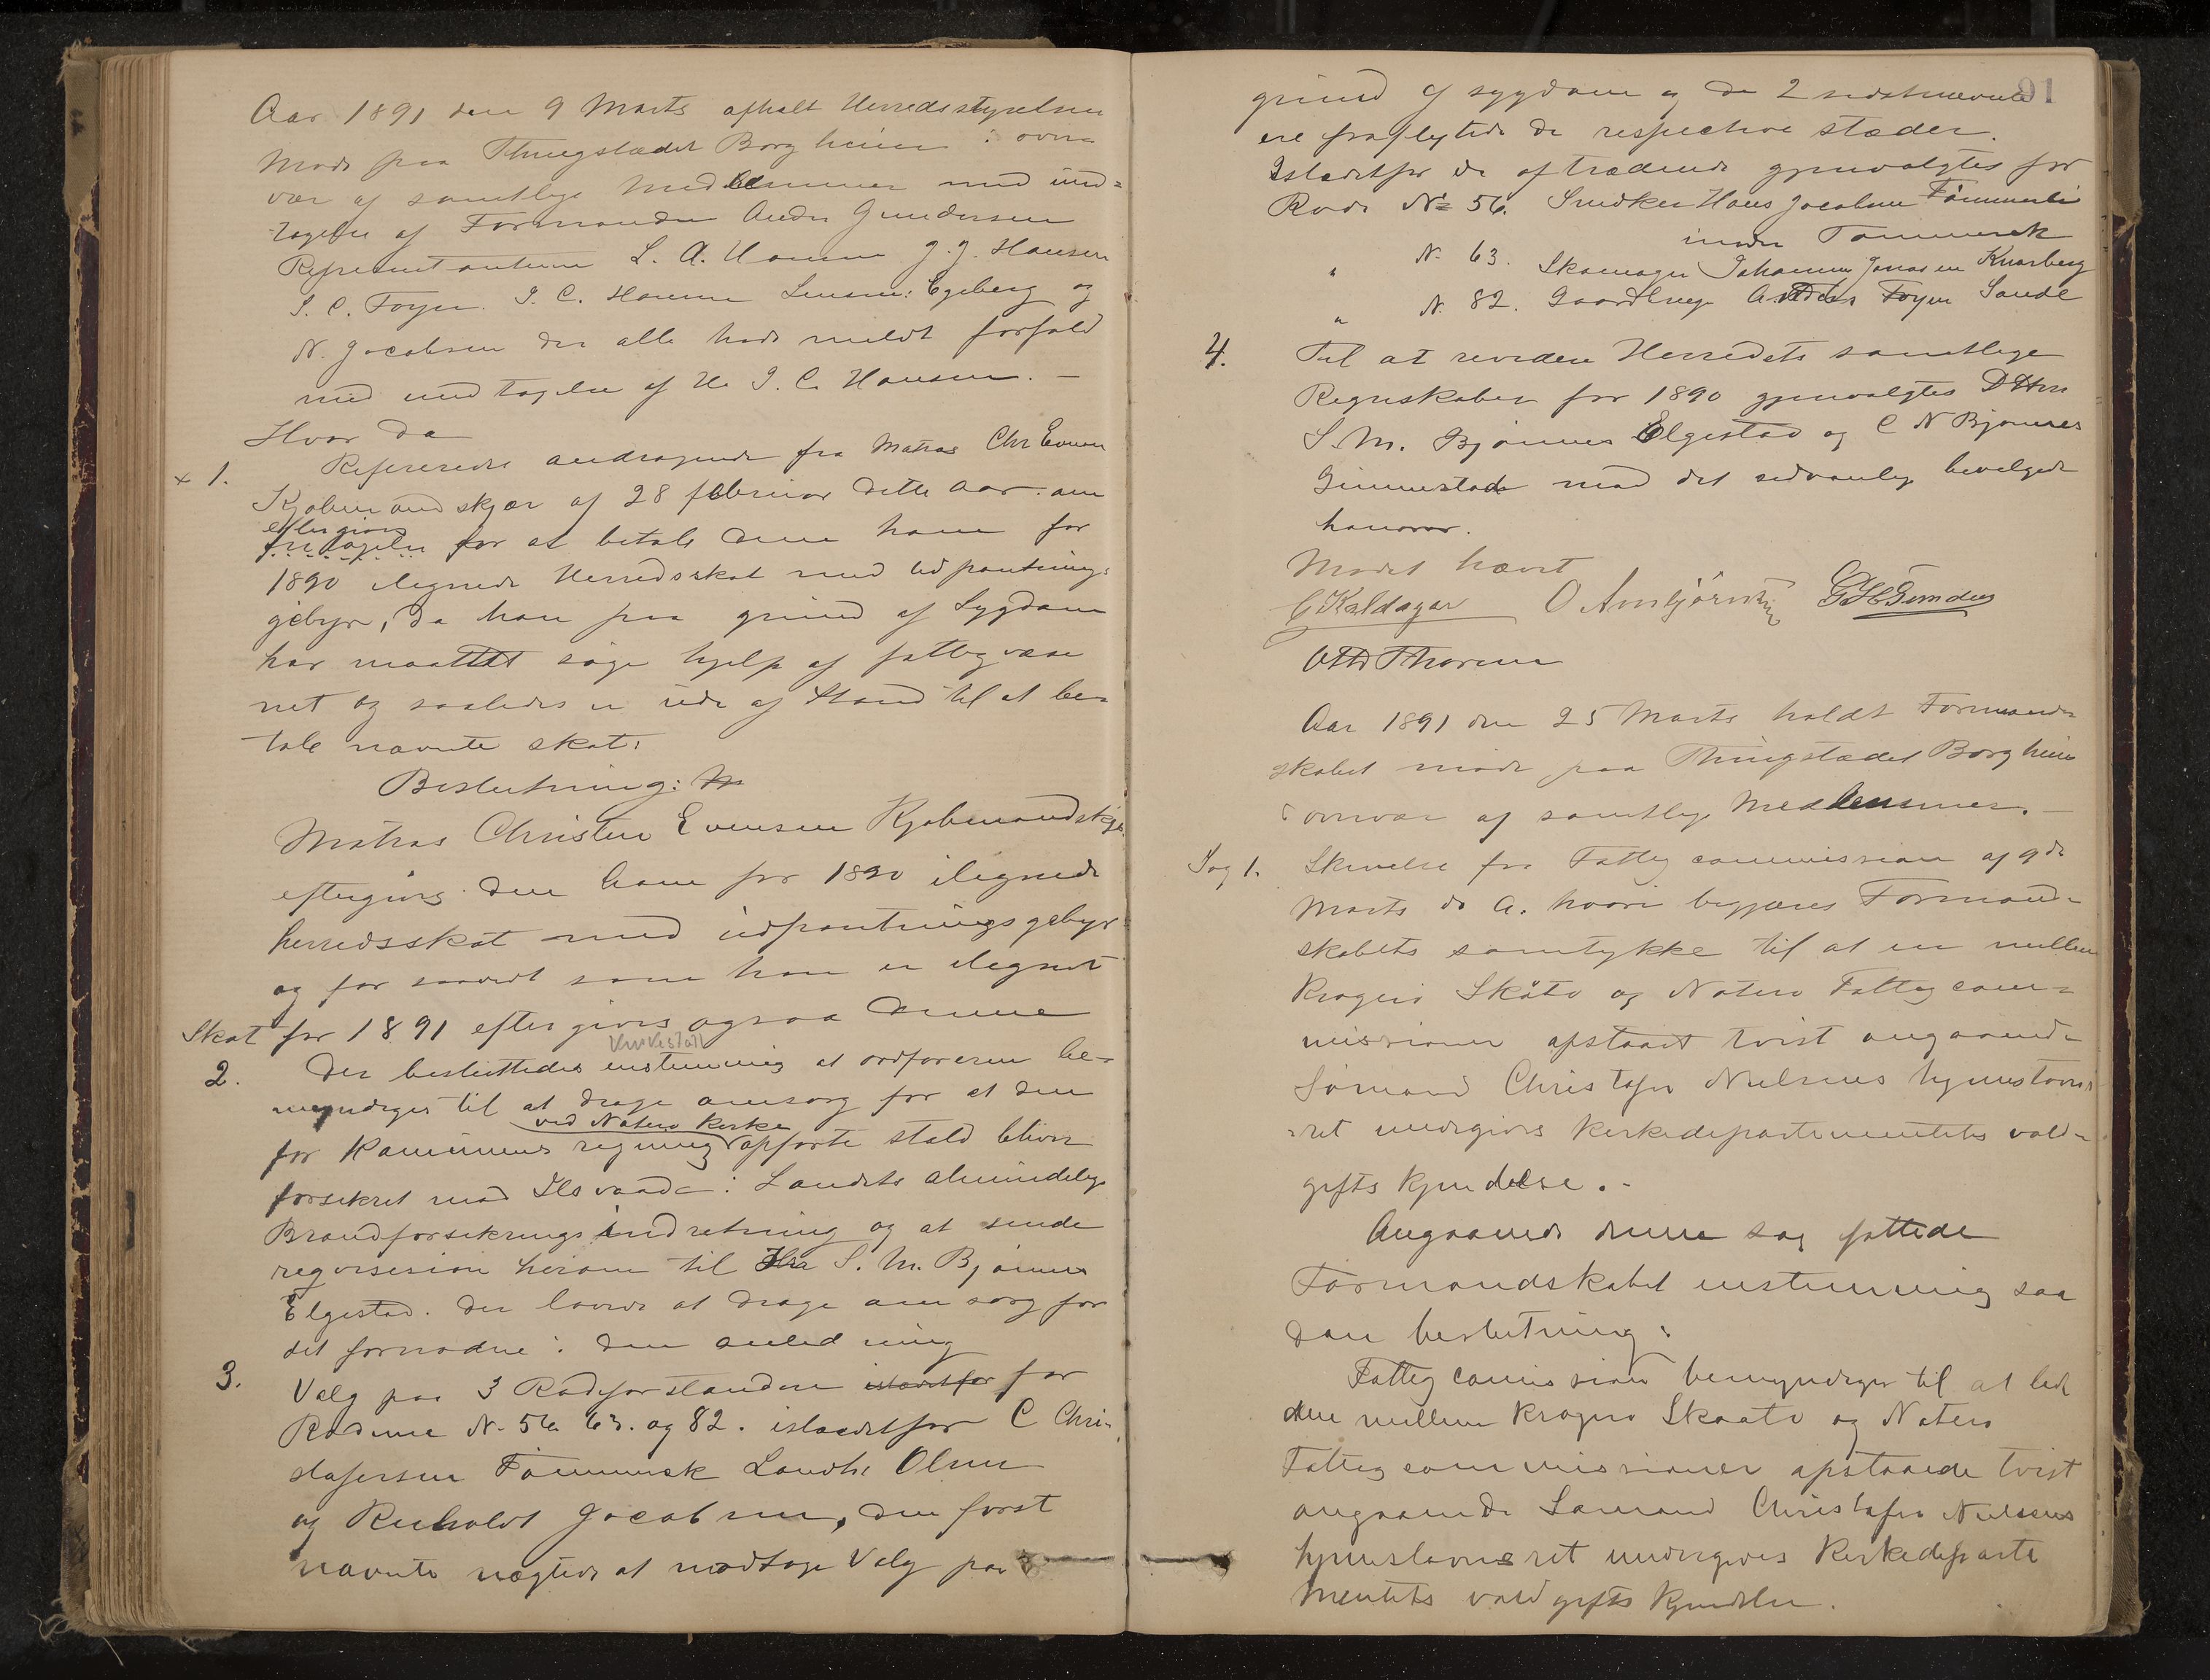 Aar 1891 den 9 Marts afholt Herredsstyrelsen
Møde paa Thingstædet Borgheim i over=
vær af samtlige Medlemmer med und=
tagelse af Formanden Anders Gundersen
Repræsentanterne L. A. Hansen J. J. Hansen
S. C. Foyn. I. C. Hansen Lensm: Egeberg og
N. Jacobsen der alle hade meldt forfald
med undtagelse af Hr I. C. Hansen. —
Hvor da
x 1. Refereredes andragende fra Matros Chr Evensen
Kjøbmandskjær af 28 februar dette Aar om
eftergivs
fritagelse for at betale den ham for
1890 ilignede Herredsskat med udpantnings
gebyr, da han paa grund af Sygdom
har maattet søge hjelp af fattigvæse
net og saaledes er ude af Stand til at be=
tale nævnte skat.
Beslutning:
Matros Christen Evensen Kjøbmandskjær
eftergives den ham for 1890 ilignede
herredsskat med udpantningsgebyr
og for saavidt som han er ilignet
Skat for 1891 eftergives ogsaa denne
2. Der besluttedes enstemmig at ordføreren be=
myndiges til at drage omsorg for at den
ved Nøterø Kirke
for Kommunens regning opførte stald bliver
forsikret mod Ilsvaade i Landets almindelige
Brandforsikrings indretning og at sende
reqvisision herom til Hr S. M. Bjønnes
Elgestad. der lovede at drage omsorg for
det fornødne i den anledning
3. Valg paa 3 Rodeforstandere istædetfor for
Roderne N. 56 63. og 82. istædetfor C Chri=
stofersen Tømmerek Laurits Olsen
og Reinholdt Jacobsen, den først
nævnte nægtede at modtage Valg paa
91
grund af sygdom og de 2 sidstnævnte
ere fraflyttede de respective stæder.
Istædetfor de aftrædende gjenvalgtes for
Rode No 56. Snedker Hans Jacobsen
indre Tømmerek
" N. 63. Skomager Johannes Jonassen Knarberg
" N. 82. Gaardbruger Anders Foyn Sande
4. Til at revidere Herredets samtlige
Regnskaber for 1890 gjenvalgtes DHrr
S. M. Bjønnes Elgestad og C N Bjønnes
Gimmestad mod det sedvanlig bevilgede
honorar.
Mødet hævet
C Kaldager O Arnbjørnsen G H Gunders
Otto Thoresen
Aar 1891 den 25 Marts holdt Formand=
skabet møde paa Thingstædet Borgheim
i overvær af samtlige Medlemmer. —
Sag 1. Skrivelse fra Fattigcommission af 9de
Marts d. A. hvori begjæres Formand=
skabets samtykke til at en mellem
Kragerø Skåtø og Nøterø Fattigcom=
missioner opstaaet tvist angaaende
Sømand Christofer Nielsens hjemstavns
=ret undergives Kirkedepartementets vold=
gifts Kjendelse. -
Angaaende denne sag fattede
Formandskabet enstemmig saa
dan beslutning:
Fattigcommission bemyndiges til at lade
den mellem Kragerø Skaatø og Nøterø
Fattigcommissioner opstaaede tvist
angaaende Sømand Christofer Nielsens
hjemstavnsret undergives Kirkedeparte
mentets voldgifts Kjendelse.